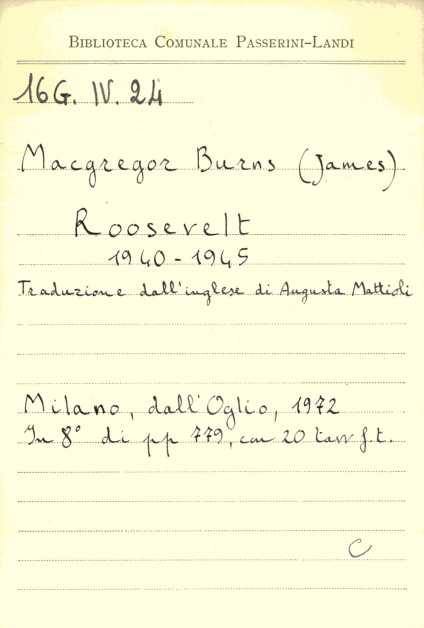 BIBLIOTECA COMUNALE PASSERINI-LANDI
16G. IV. 24
Macgregor Burns (James)
Roosevelt
1940-1945
Traduzione dall'inglese di Augusta Mattioli
Milano, dall'Oglio, 1972
In 8° di pp 779, con 20 tavv f.t.
C